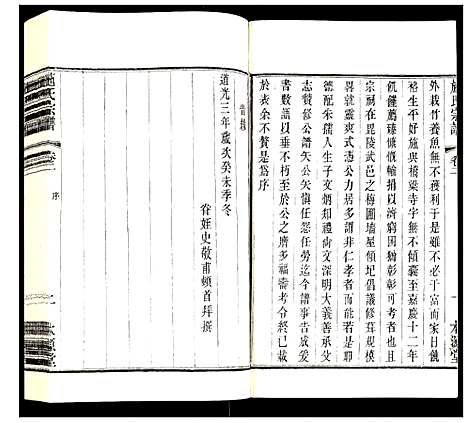 施氏宗譜 卷二
外栽竹養魚不匱獲利于是雖不必言富而家日饒
裕生平好施與橋梁寺宇無不傾囊至嘉慶十二年
飢饉薦臻慷慨輸捐以濟窮困猶彰彰可考者也且
宗祠在毘陵武邑之梅圃墻屋傾圮倡議修葺規模
暑就震爽式憑公力居多謂非仁孝者而能如是乎
德配朱孺人生子文炳知禮尚文深明大義善承父
志贊修公譜矢公矢愼任怨任勞迄今譜事告成爰
綴數言以爲序至於公之膺多福壽考令終已載
於表余不贅是爲序
道光三年歲次癸未季冬
眷姪史敬甫頓首拜撰
施氏宗譜 卷二
序
一
二
本源堂